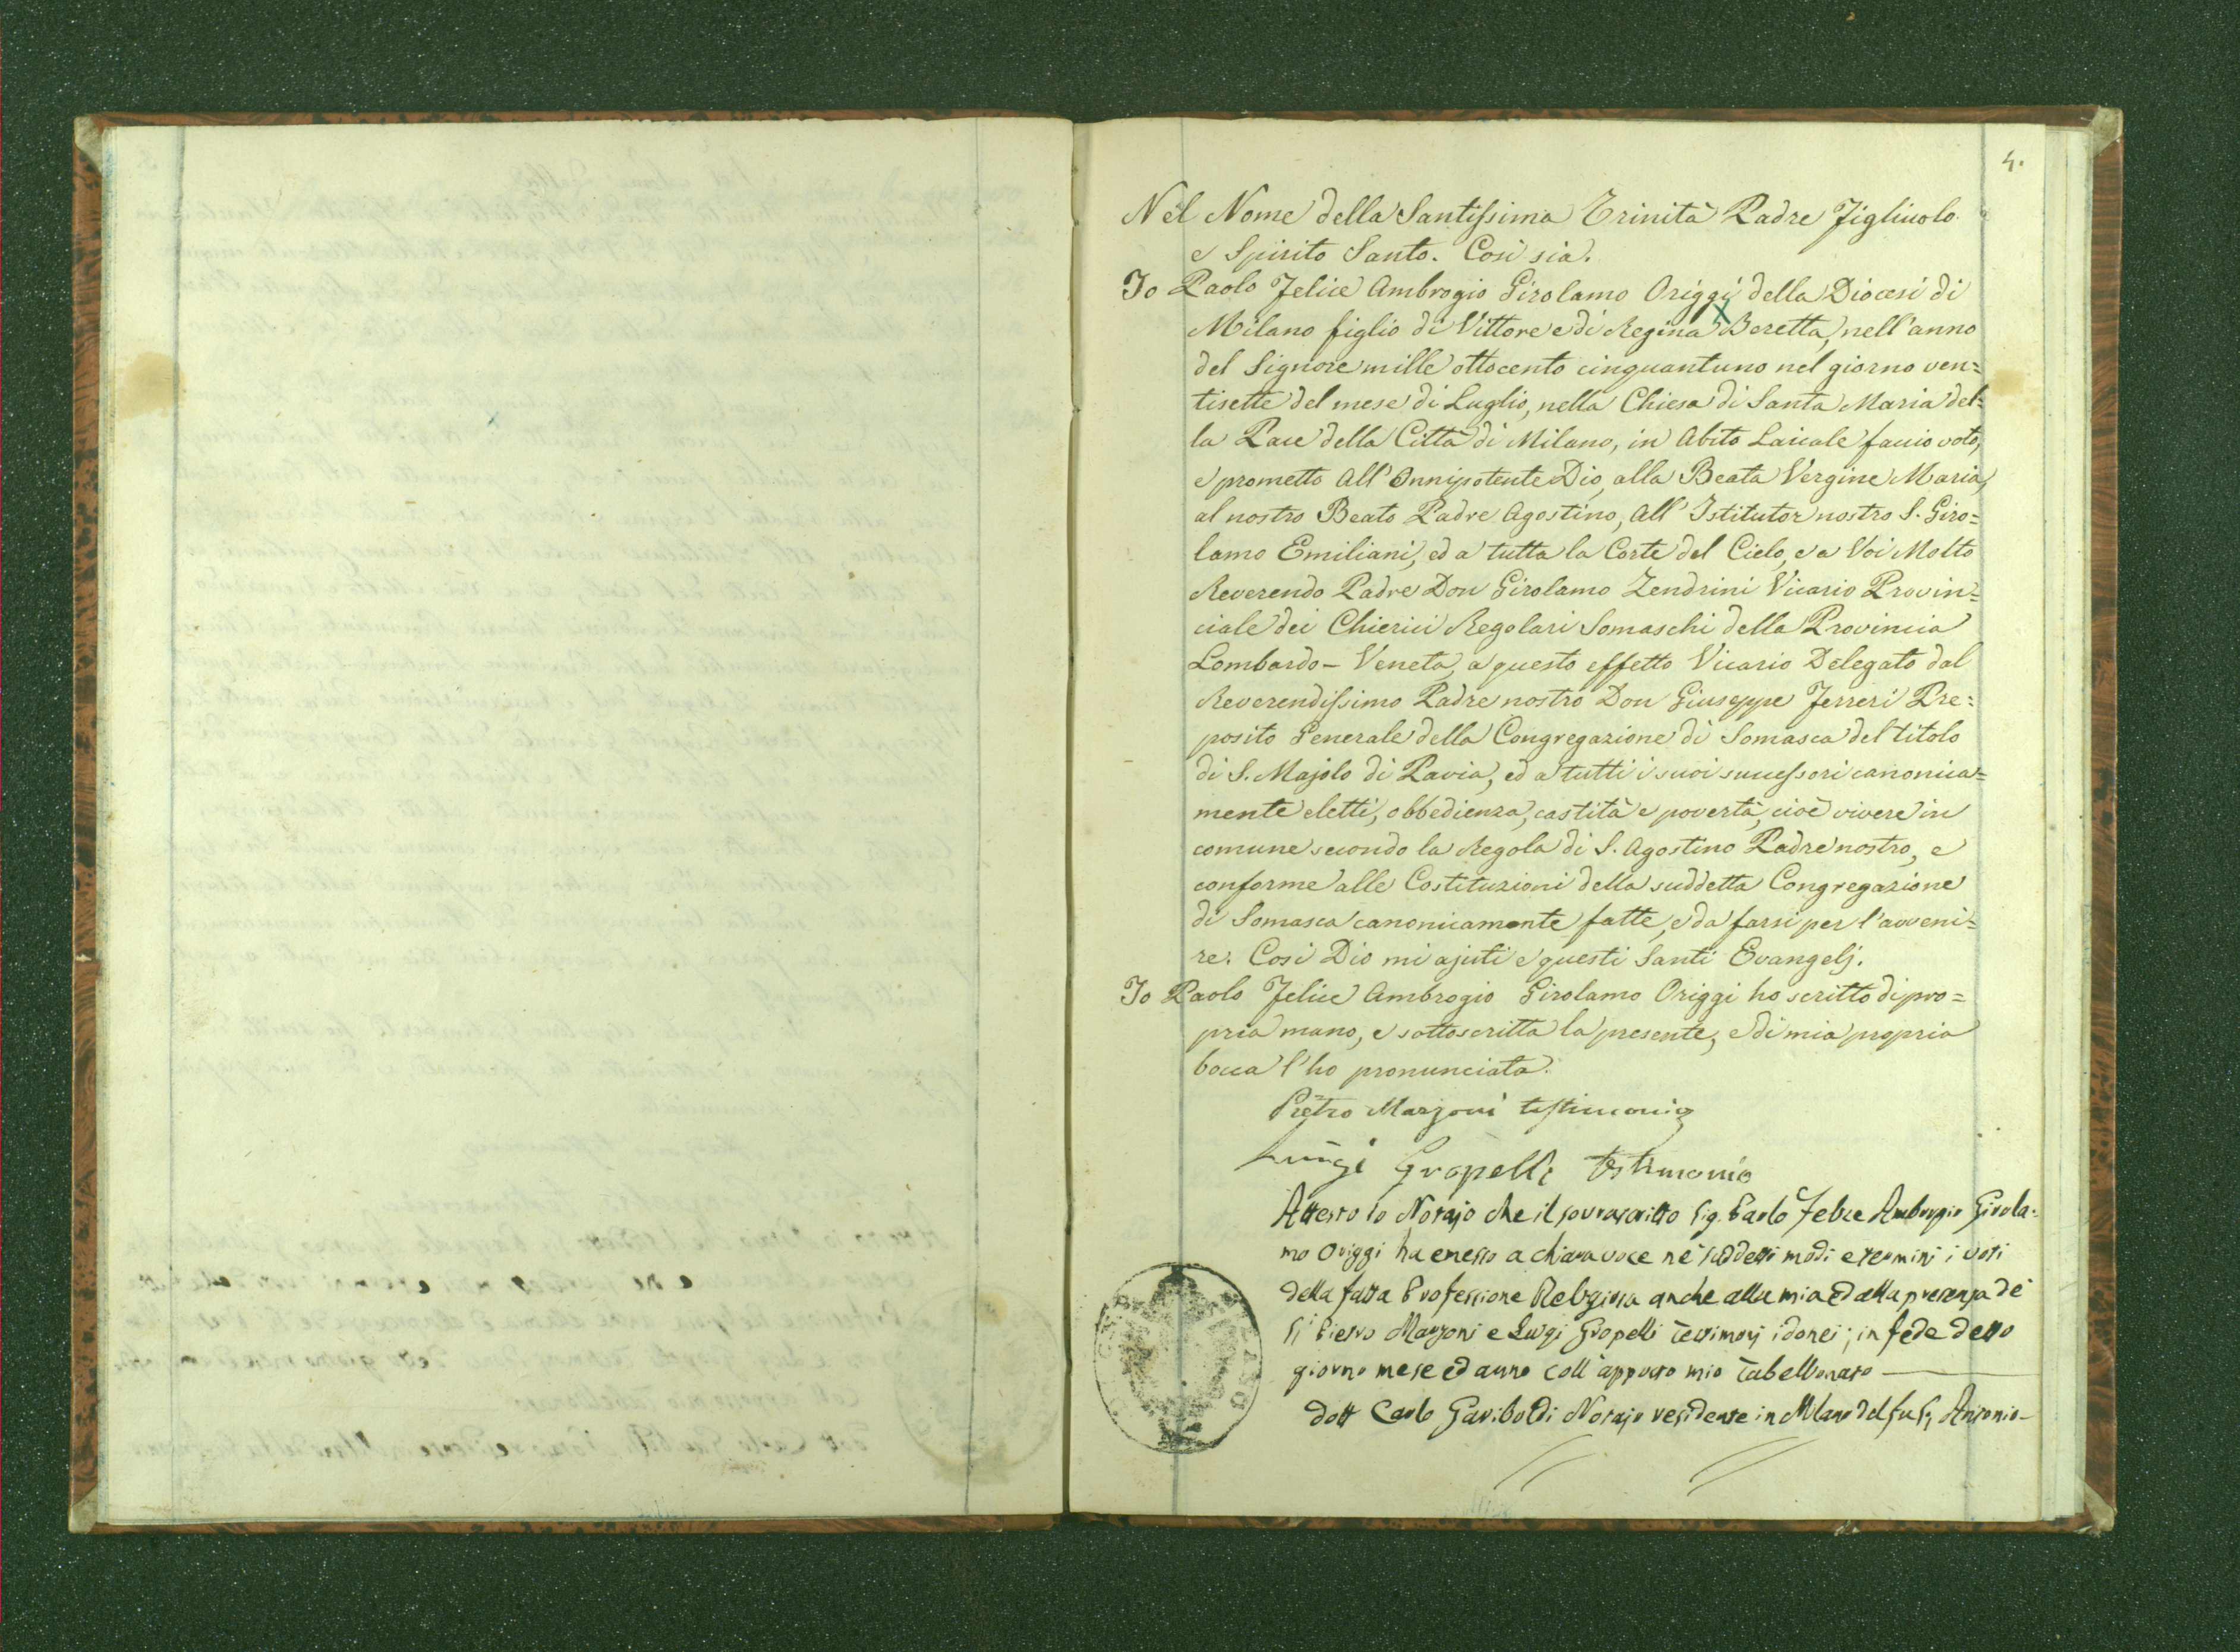 4.
Nel Nome della Santissima Trinità Padre Figliuolo
e Spirito Santo. Così sia.
Io Paolo Felice Ambrogio Girolamo Origgi della Diocesi di
Milano figlio di Vittore e di Regina Beretta, nell'anno
del Signore mille ottocento cinquantuno nel giorno ven=
tisette del mese di Luglio, nella Chiesa di Santa Maria del=
la Pace della Città di Milano, in Abito Laicale faccio voto,
e prometto All' Onnipotente Dio, alla Beata Vergine Maria,
al nostro Beato Padre Agostino, All' Istitutor nostro S. Giro=
lamo Emiliani, ed a tutta la Corte del Cielo, e a Voi Molto
Reverendo Padre Don Girolamo Zendrini Vicario Provin=
ciale dei Chierici Regolari Somaschi della Provincia
Lombardo-Veneta, a questo effetto Vicario Delegato dal
Reverendissimo Padre nostro Don Giuseppe Ferreri Pre=
posito Generale della Congregazione di Somasca del titolo
di S. Majolo di Pavia, ed a tutti i suoi successori canonica=
mente eletti, obbedienza, castità e povertà, cioè vivere in
comune secondo la Regola di S. Agostino Padre nostro, e
conforme alle Costituzioni della suddetta Congregazione
di Somasca canonicamente fatte, e da farsi per l'avveni=
re. Così Dio mi ajuti e questi Santi Evangelj.
Io Paolo Felice Ambrogio Girolamo Origgi ho scritto di pro=
pria mano, e sottoscritta la presente, e di mia propria
bocca l'ho pronunciata.
Pietro Marzoni testimonio
Luigi Gropelli testimonio
Attesto io Notajo che il sovrascritto Sig. Paolo Felice Ambrogio Girola=
mo Origgi ha emesso a chiara voce ne' suddetti modi e termini i voti
della fatta Professione Religiosa anche alla mia ed alla presenza de'
Sig.i Pietro Marzoni e Luigi Gropelli testimonj idonei; in fede detto
giorno mese ed anno coll' apposto mio Tabellionato
Dott Carlo Gariboldi Notajo residente in Milano del fu Sig. Antonio